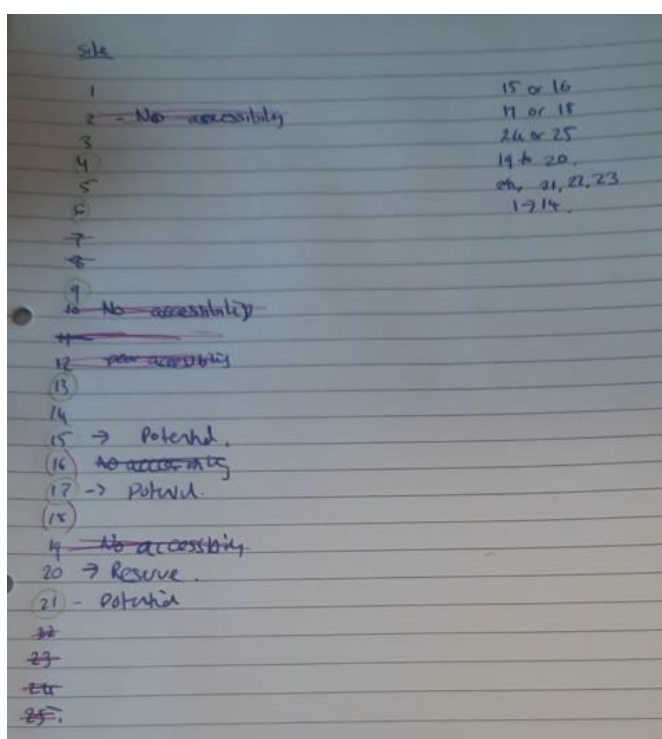 Site
1
2 - No accessibility
3
4
5
6
7
8
9
10 No accessibility
11
12 poor accessibility
13
14
15 → Potential.
16 No accessibility
17 -> Potential.
18
19 No accessibility
20 → Reserve.
21 - Potential
22
23
24
25.
15 or 16
17 or 18
24 or 25
19 to 20.
21, 22, 23
1→14.